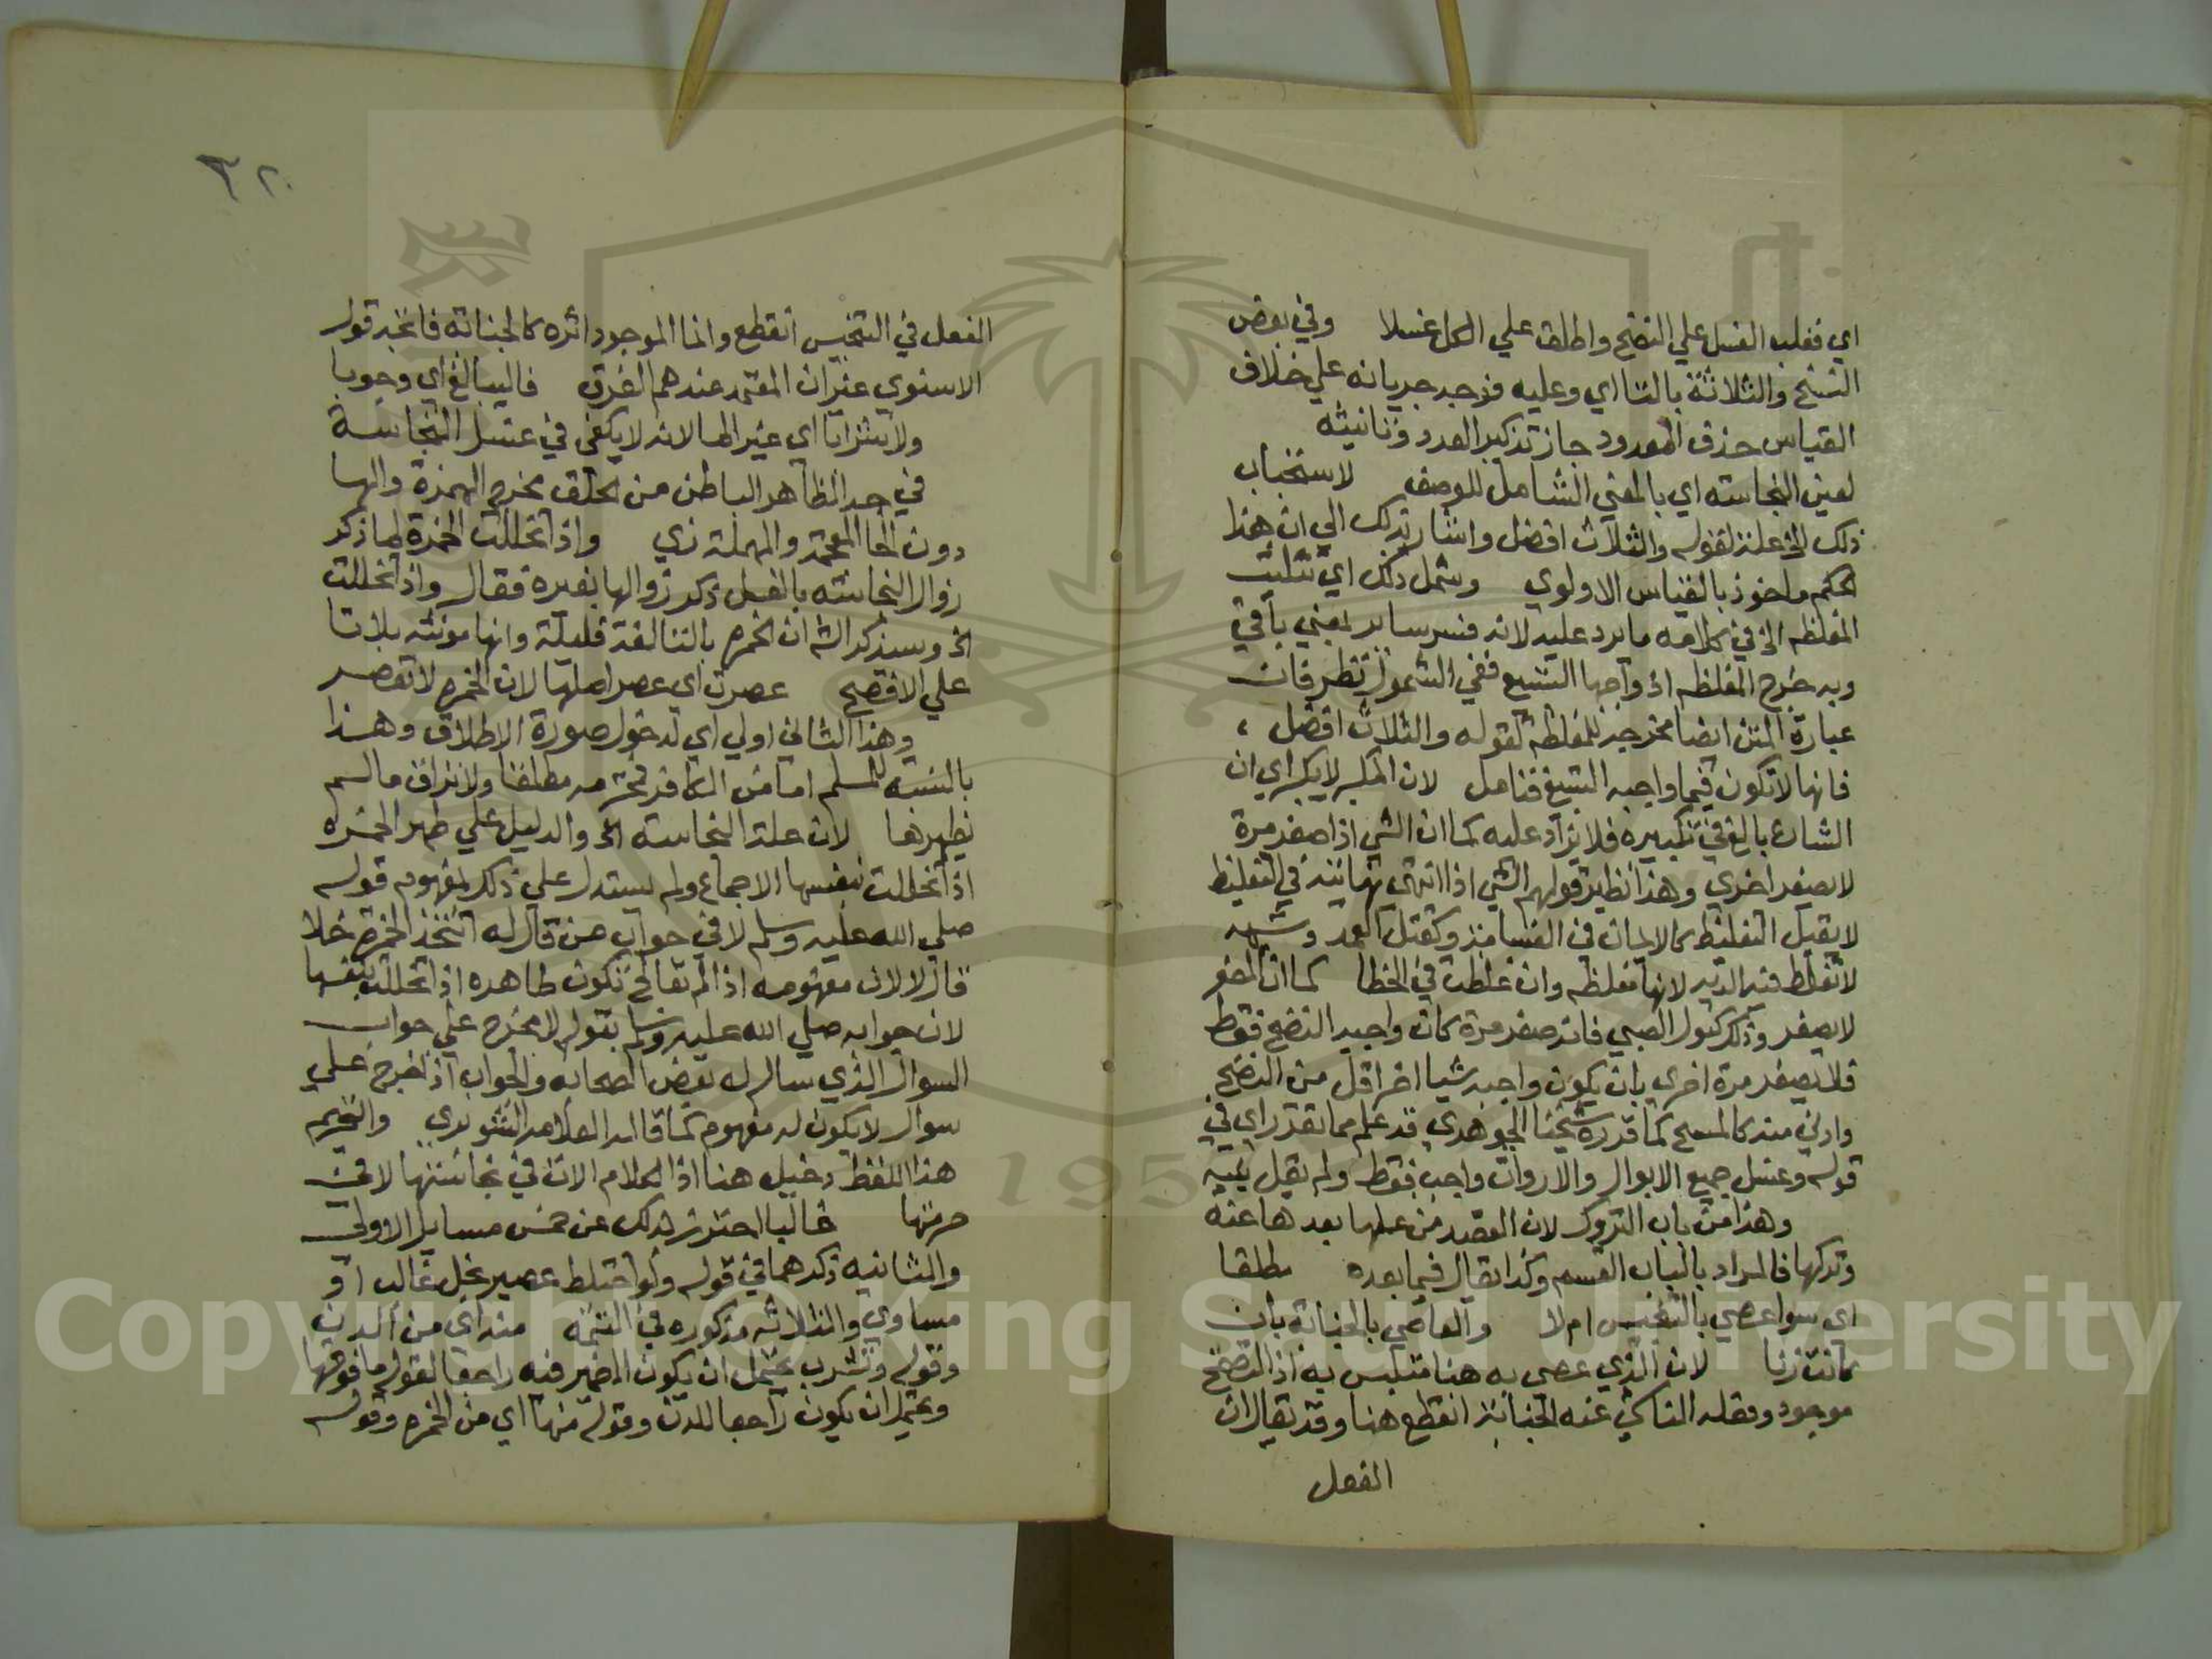 اي فغلب الغسل علي النضح واطلق علي الكل غسلا وفي بعض
النسخ والثلاثة بالتا اي وعليه فوجه جريانه علي خلاف
القياس حذف المعدود جاز تذكير العدد وتانيثه
لعين النجاسته اي بالمعني الشامل للوصف لاستحباب
ذلك الخ علة لقوله والثلاث افضل واشار بذلك الي ان هذا
الحكم ماخوذ بالقياس الاولوي وشمل ذلك اي تثليث
المغلظه الخ في كلامه ما يرد عليه لانه فسر ساير بمعني باقي
وبه خرج المغلظه اذ واجبها التسبيع ففي الشمول نظر فان
عبارة المتن ايضا مخرجه للمغلظة لقوله والثلاث افضل
فانها لا تكون فيما واجبه التسبيع فتامل لان المكبر لا يكبر اي ان
الشارع بالغ في تكبيره فلا يزاد عليه كما ان الشي اذا صغر مرة
لا يصغر اخري وهذا نظير قولهم الشي اذا انتهي نهايته في التغليظ
لا يقبل التغليظ كالايمان في القسامة وكقتل العمد وشبهه
لا تغلظ فيه الديه لانها مغلظه وان غلظت في الخطا كما ان المصغر
لا يصغر وذلك كبول الصبي فانه صغر مرة كان واجبه النضح فقط
فلا يصغر مرة اخري بان يكون واجبه شيا اخر اقل من النضح
وادني منه كالمسح كما قرره شيخنا الجوهري قد علم مما تقدر اي في
قوله وغسل جميع الابوال والارواث واجب فقط ولم يقل بنيه
وهذا من باب التروك لان القصد من علمها بعدها عنه
وتركها فالمراد بالباب القسم وكذا يقال فيما بعده مطلقا
اي سوا عصي بالتنجيس ام لا والعاصي بالجنابة بان
كانت زنا لان الذي عصي به هنا متلبس به اذ التضمخ
موجود وفعله الناشي عنه الجنابة انقطع هنا وقد يقال ان
الفعل
٣٢٠
الفعل في التنجيس انقطع وانما الموجود اثره كالجنابة فاتجه قول
الاسنوي غير ان المعتمد عندهم الفرق فاليبالغ اي وجوبا
ولا شرابا اي غير الما لانه لا يكفي في غسل النجاسة
في حد الظاهر الباطن من الحلق مخرج الهمزة والها
دون الخا المعجمة والمهملة زي واذا تخللت الخمرة لما ذكر
زوال النجاسته بالغسل ذكر زوالها بغيره فقال واذا تخللت
الخ وسيذكر الش ان الخمره بالتا لغة قليلة وانها مونثه بلا تا
علي الافصح عصرت اي عصر اصلها لان الخمره لا تعصر
وهذا الثاني اولي اي لدخول صورة الاطلاق وهذا
بالنسبه للمسلم اما من الكافر فمحترمه مطلقا ولا تراق ما لم
يظهرها لان علة النجاسته الخ والدليل علي طهر الخمره
اذا تخللت بنفسها الاجماع ولم يستدل علي ذلك بمفهوم قوله
صلي الله عليه وسلم لا في جواب من قال له اتتخذ الخمره خلا
قال لا لان مفهومه اذا لم تعالج تكون طاهره اذا تخللت بنفسها
لان جوابه صلي الله عليه وسلم بقوله لا مخرج علي جواب
السوال الذي سال له بعض الصحابه والجواب اذا خرج علي
سوال لا يكون له مفهوم كما قاله العلامه الشوبري والتحريم
هذا اللفظ دخيل هنا اذ الكلام الان في نجاستها لا في
حرمتها غالبا احترز بذلك عن خمس مسايل الاولي
والثانيه ذكرهما في قوله ولو اختلط عصير بخل غالب او
مساوي والثلاثه مذكوره في التتمه منه اي من الدن
وقوله وتشرب يحتمل ان يكون الضمير فيه راجعا لقوله ما فوقها
ويحتمل ان يكون راجعا للدن وقوله منها اي من الخمره وقوله
Copyright © King Saud University
195